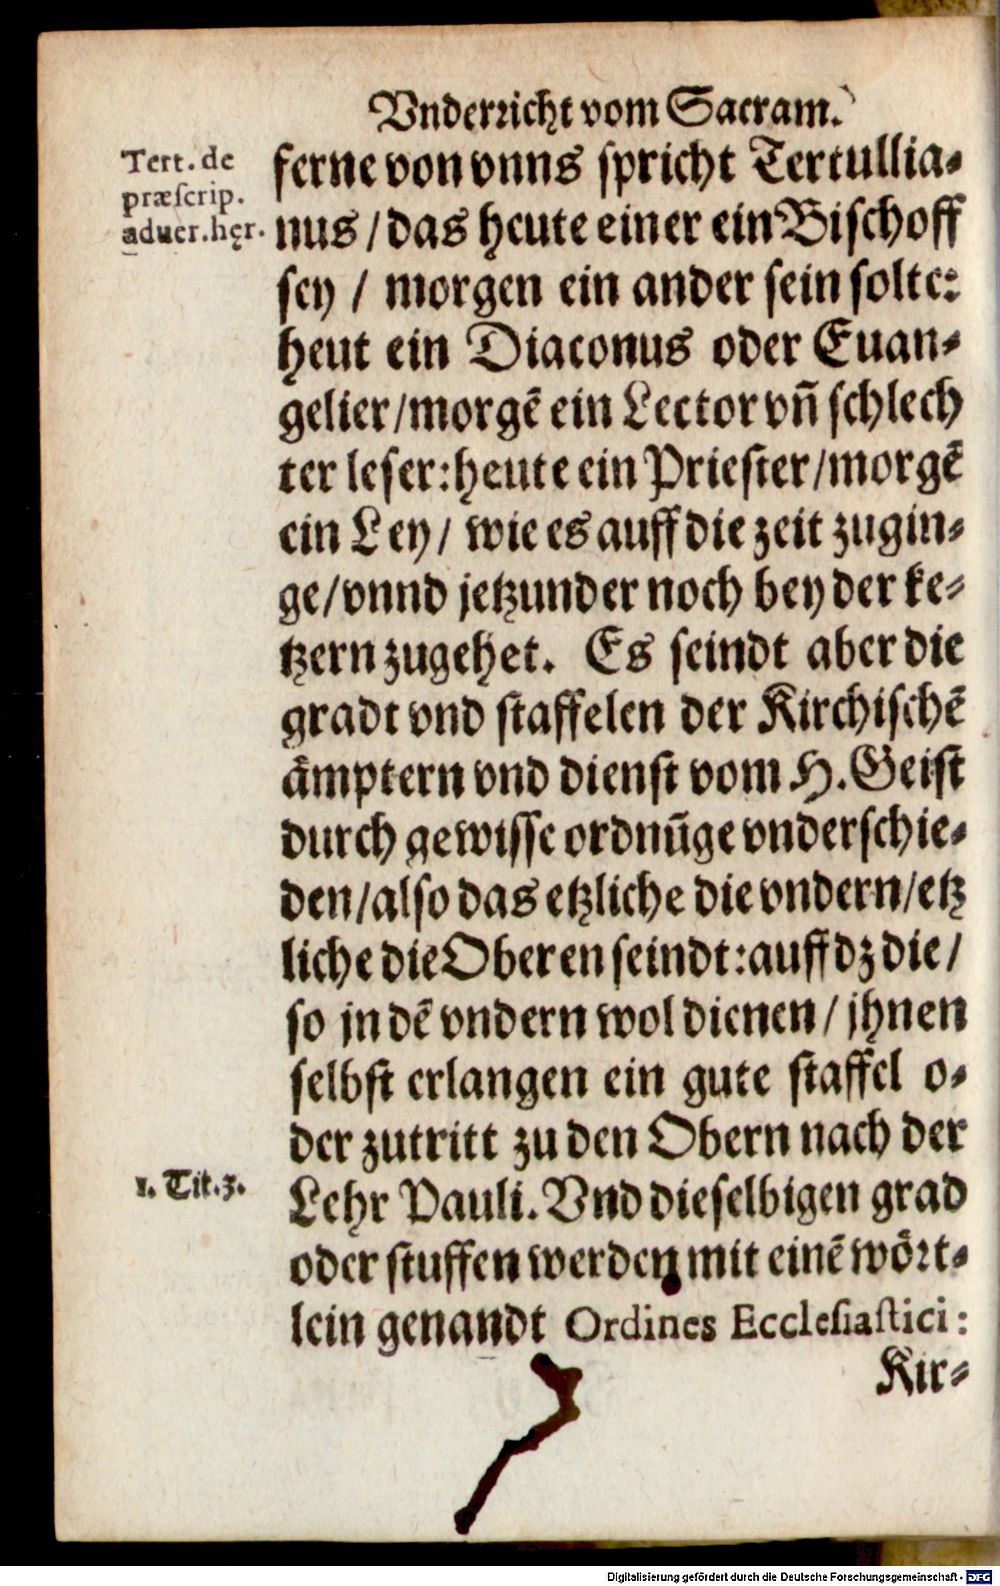 Vnderricht vom Sacram.
Tert. de
præscrip.
aduer.hęr.
ferne von vnns spricht Tertullia⸗
nus / das heute einer ein Bischoff
sey / morgen ein ander sein solte:
heut ein Diaconus oder Euan⸗
gelier/morgē ein Lector vñ schlech
ter leser:heute ein Priester/morgē
ein Ley/ wie es auff die zeit zugin⸗
ge/vnnd jetzunder noch bey der ke⸗
tzern zugehet. Es seindt aber die
gradt vnd staffelen der Kirchischē
aͤmptern vnd dienst vom H.Geist
durch gewisse ordnūge vnderschie⸗
den/also das etzliche die vndern/etz
liche die Oberen seindt:auff dz die/
so jn dē vndern wol dienen/ jhnen
selbst erlangen ein gute staffel o⸗
der zutritt zu den Obern nach der
1. Tit.3.
Lehr Pauli. Vnd dieselbigen grad
oder stuffen werden mit einē woͤrt⸗
lein genandt Ordines Ecclesiastici:
Kir⸗
Digitalisierung gefördert durch die Deutsche Forschungsgemeinschaft - DFG